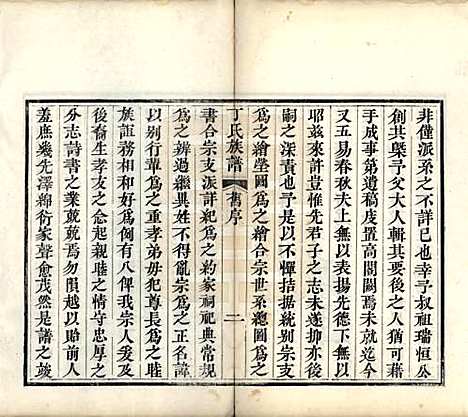 非僅派系之不詳已也幸予叔祖瑞恒公
創其槩予父大人輯其要後之人猶可藉
手成事第遺稿庋置高閣闕焉未就迄今
又五易春秋夫上無以表揚先德下無以
昭兹來許豈惟先君子之志未遂抑亦後
嗣之深責也予是以不憚拮据別宗支而
為之繪塋圖為之繪合宗世系總圖為之
丁氏族譜 舊序 二
書合宗支派詳紀為之約家祠祀典常規
為之辨過繼異姓不得亂宗為之正名諱
以別行輩為之重孝弟毋犯尊長為之戒
族誼務相助有八俾我宗人愛及
後裔生孝友之念起親睦之情守忠厚之
分志詩書之業兢兢焉罔敢隕越以貽前人
羞庶幾先澤綿衍家聲愈茂然是譜之竣